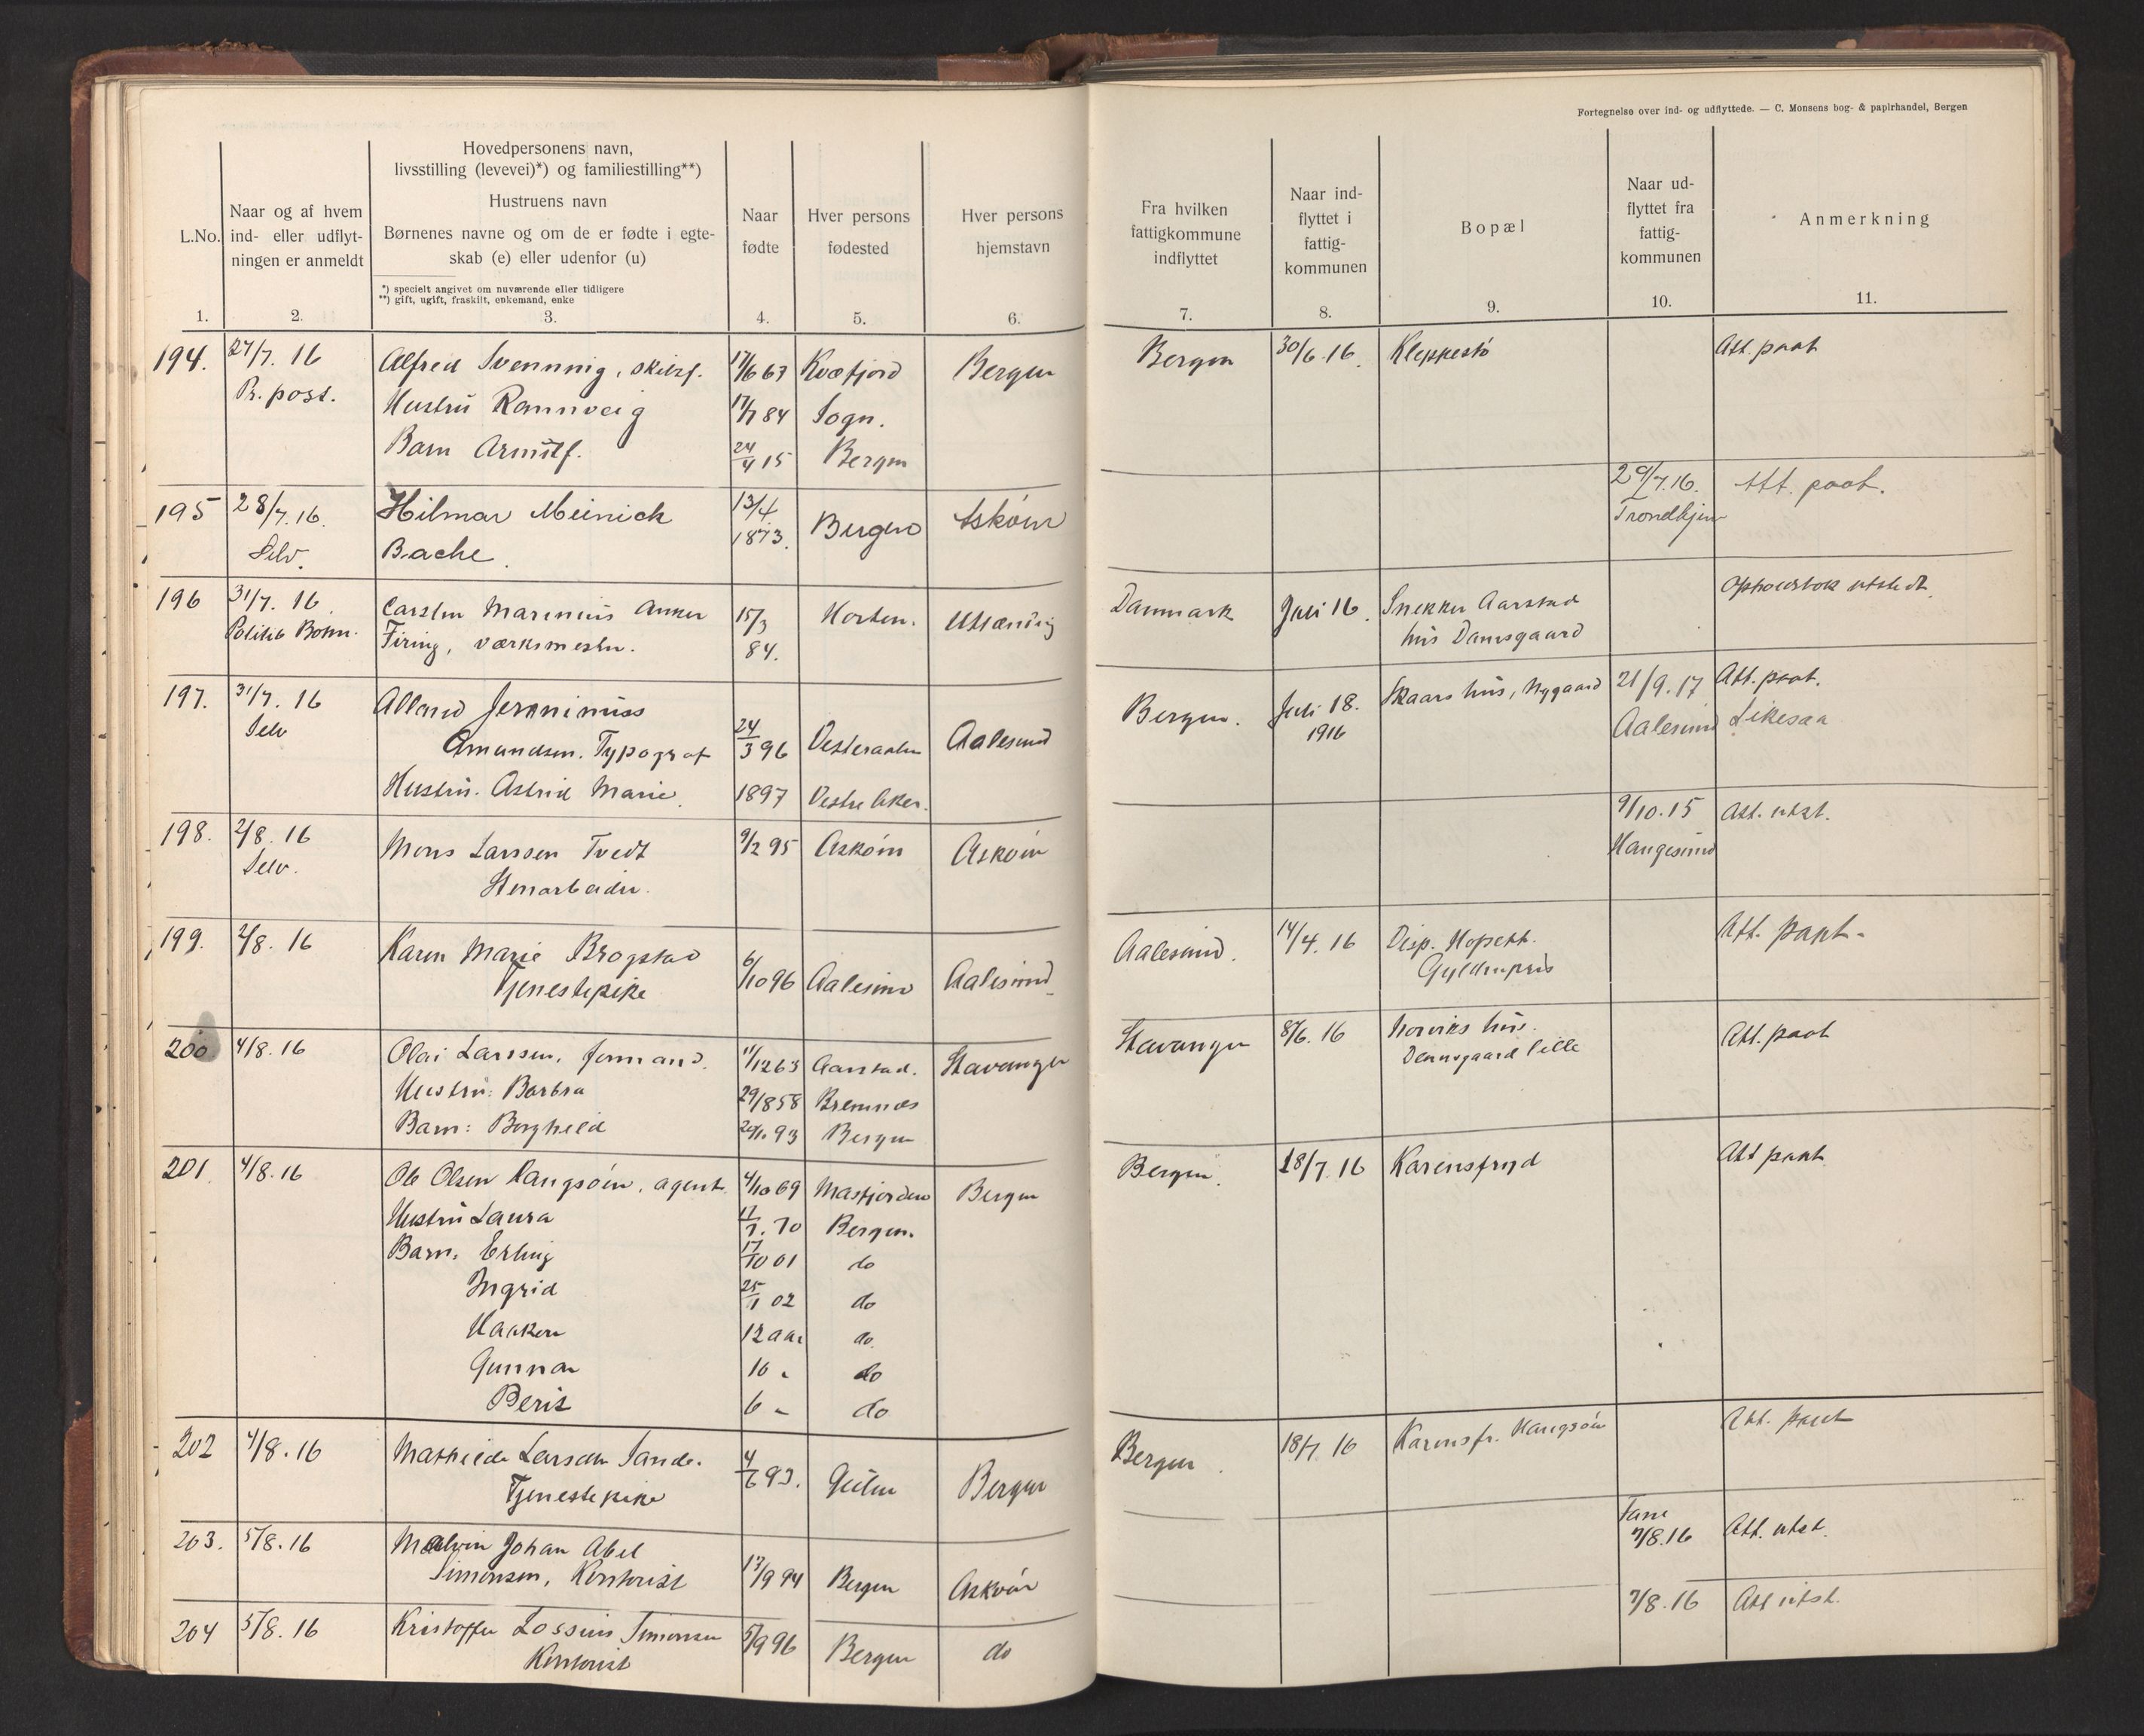 Fortegnelse over ind- og udflyttede. — C. Monsens bog- & papirhandel, Bergen
L.No.
1.
Naar og af hvem
ind- eller udflyt-
ningen er anmeldt
2.
Hovedpersonens navn,
livsstilling (levevei)*) og familiestilling**)
Hustruens navn
Børnenes navne og om de er fødte i egte-
skab (e) eller udenfor (u)
*) specielt angivet om nuværende eller tidligere
**) gift, ugift, fraskilt, enkemand, enke
3.
Naar
fødte
4.
Hver persons
fødested
5.
Hver persons
hjemstavn
6.
Fra hvilken
fattigkommune
indflyttet
7.
Naar ind-
flyttet i
fattig-
kommunen
8.
Bopæl
9.
Naar ud-
flyttet fra
fattig-
kommunen
10.
Anmerkning
11.
194. 27/7. 16 Alfred Svenning, 17/6 67 Kvæfjord Bergen Bergen 30/6 16. Kleppestö Att. paat
Pr. post. Hustru Rannveig 17/7 84 Sogn.
Barn Arnulf. 24/4 15 Bergen
195 28/7. 16. Hilmar Meinich 13/4 Bergen Askøen 29/7.16. Att. paat.
Selv. Bache. 1873. Trondhjem
196 31/7. 16. Carsten Marenius Anker 15/3 Horten. Utlændig Danmark Juli 16. Snekker Aarstad Opholdsbok utstedt.
Politib Firing, værksmester. 84. hus Damsgaard
197. 31/7. 16 Jeronimus Bergen. Juli 18. Skaars hus, Nygaard 21/9. 17 Att. paat.
Selv Amundsen. Typograf 24/3 96 Vesteraalen Aalesund 1916 Aalesund Likesaa
Hustru. Astrid Marie. 1897 Vestre Aker.
198. 2/8. 16 Mons Larssen Tvedt 9/2 95 Askøen Askøen 9/10. 15 Att. utst.
Selv. Stenarbeider. Haugesund
199. 2/8. 16 Karen Marie Brogstad 6/10 96 Aalesund Aalesund Aalesund. 14/4. 16 Disp. Att. paat.
Tjenestepike Gyldenpris
200 4/8. 16 Olai Larssen, formand. 11/12 63 Aarstad. Stavanger Stavanger 8/6. 16 Norviks hus. Att. paat
Hustru: Barbra 29/8 58 Bremnes Damsgaard lille
Barn: Borghild 93 Bergen
201. 4/8. 16 Ole Olsen Haugsøen, agent. 4/10 69 Masfjorden Bergen Bergen. 18/7. 16 Karensfryd Att paat
Hustru Laura 17/7. 70 Bergen.
Barn: Erling 17/10 01 do
Ingrid 25/1 02 do
Haakon 12 aar do.
Gunnar 10 " do
Beris 6 " do
202 4/8. 16 Mathilde Larsen Sande. 4/6 93. Gulen Bergen Bergen. 18/7 16 Karensfr. Haugsøen Att. paat
Tjenestepike
203. 5/8. 16 Malvin Johan Abel Fane
Simonsen, Kontorist 13/9 94 Bergen Askøen 7/8.16 Att. utst.
204 5/8. 16 Kristoffer Lossius Simonsen 5/9 96 Bergen do 7/8. 16 Att utst.
Kontorist